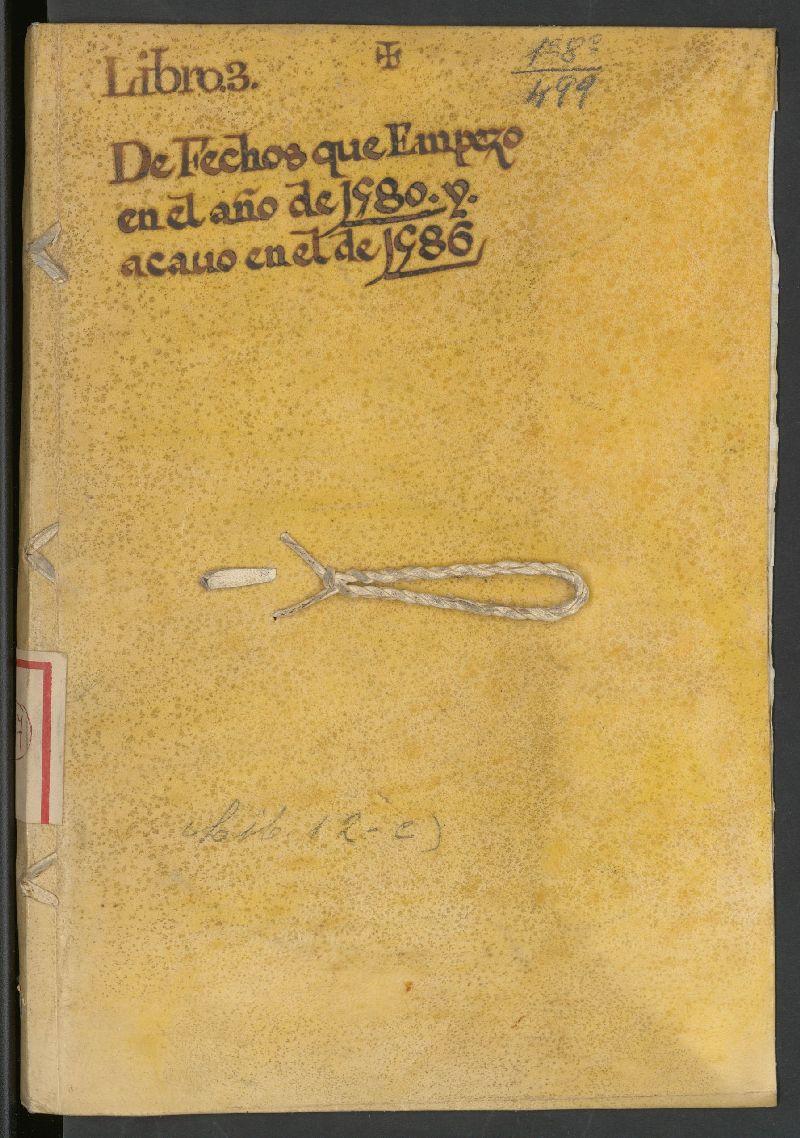 Libro.3.
De Fechos que Empezo
en el año de 1580. y.
acauo en el de 1586
1ª 8ª
499
Lib. 12-c)